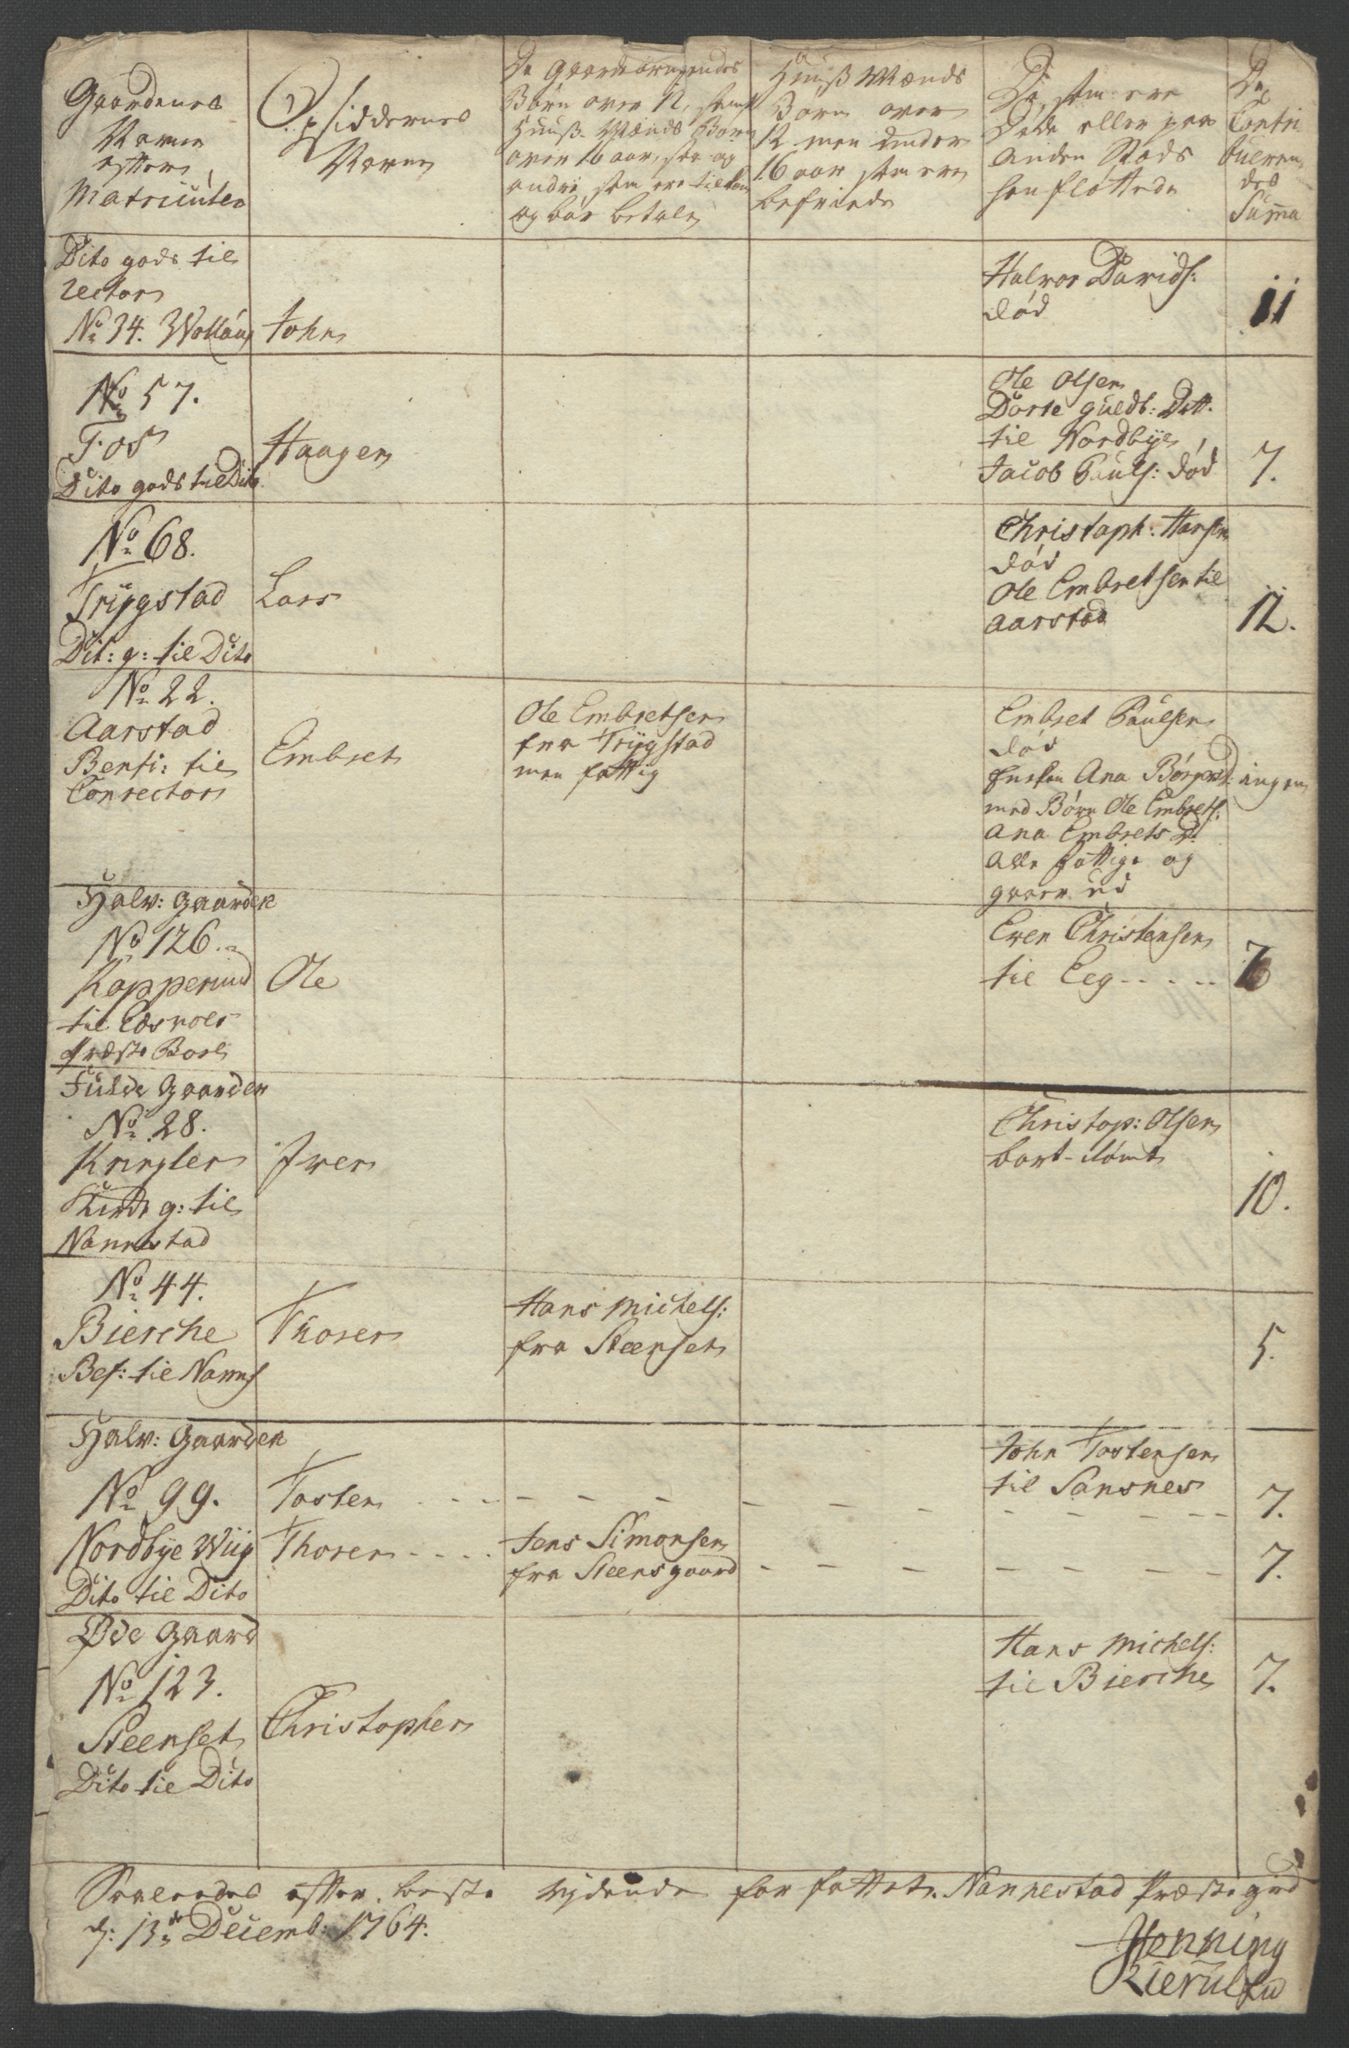 Gaardenes
Navne
efter
Matriculen
Opsiddernes
Navne
De Gaardbrugendes
Børn over 12, samt
Huus-Mænds Børn
over 16 aar, saa og
andre, som ere tilkom
og bør betale
Huus Mænds
Børn over
12 men under
16 aar som ere
befriede
De, som ere
Døde eller paa
anden Stads
henfløttede
De
Contri
bueren
des
Suma
Dito gods til
Rector
No 34. Wollaug
John
Halvor Davids:
død
11
No 57.
Fos
Dito gods til Dito
Haagen
Ole Olsen
Dorte Guldb: Datt.
til Nordbye
Jacob Pauls: død
7.
No 68.
Trygstad
Dit: g: til Dito
Lars
Christoph: Hansen
død
Ole Embretsen til
Aarstad
12.
No 22.
Aarstad
Benfi: til
Conrector
Embret
Ole Embretsen
fra Trygstad
men fattig
Embret Paulsen
død
Enken Ana Børgersd. ingen
med Børn Ole Embrets:
Ana Embrets D:
alle fattige og
gaaer ud
Halv: Gaarder
No 126.
Kopperud
til Edsvolds
Præste Boel
Ole
Even Christensen
til Eeg
7
Fulde Gaarder
No 28.
Kringler
Kirke g: til
Nannestad
Iver
Christop: Olsen
bort-rømt
10.
No 44.
Bierche
Bef: til Nannes
Thorer
Hans Michels:
fra Steenset
5.
Halv: Gaarder
No 99.
Nordbye Wiig
Dito til Dito
Tosten
John Tostensen
til Sansnes
7.
Thorer
Jens Simonsen
fra Steensgaard
7.
Øde Gaard
No 123.
Steenset
Dito til Dito
Christopher
Hans Michels:
til Bierche
7.
Saaledes efter beste Vidende forfattet. Nannestad Præstegrd
d: 13de Decemb: 1764.
Henning
Kierulf